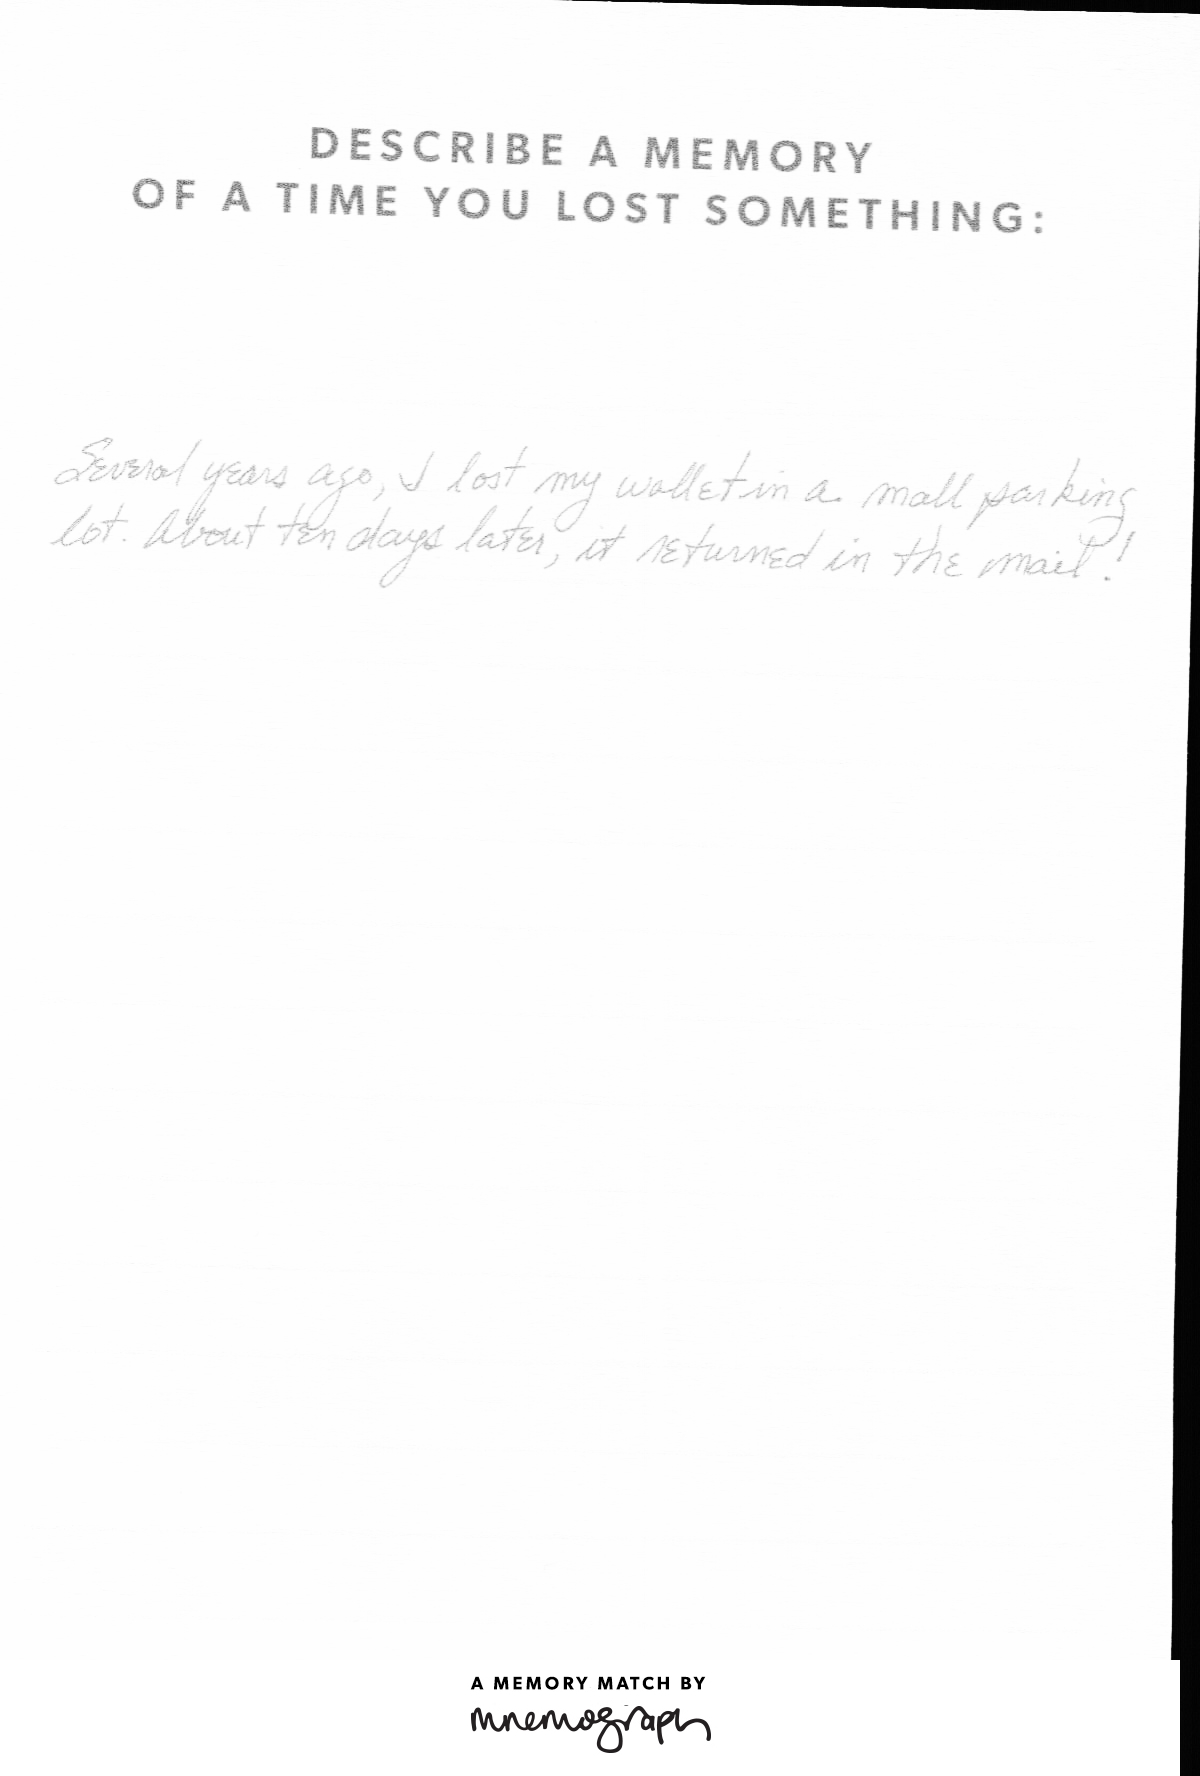 DESCRIBE A MEMORY
OF A TIME YOU LOST SOMETHING:
Several years ago, I lost my wallet in a mall parking
lot. About ten days later, it returned in the mail!
A MEMORY MATCH BY
mnemograph